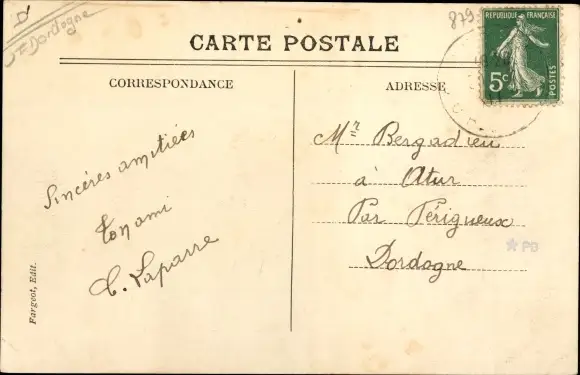 D
Dordogne
879
CARTE POSTALE
RÉPUBLIQUE FRANÇAISE
5c
POSTES
CORRESPONDANCE
ADRESSE
Sincères amitiées
ton ami
C. Laparre
Mr Bergadieu
à Atur
Par Périgueux
Dordogne
PB
Fargeot, Edit.